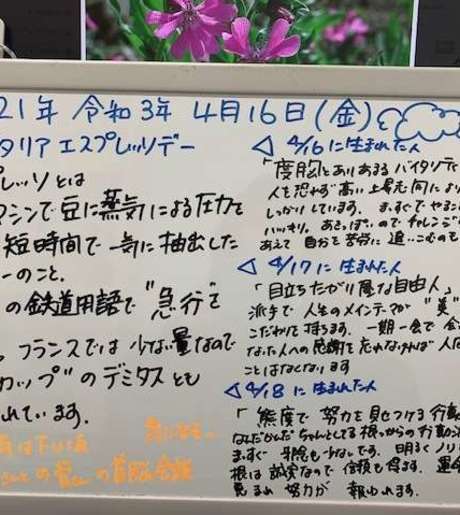 21年 令和3年 4月16日(金)
タリア エスプレッソデー
プレッソとは
マシンで豆に蒸気による圧力を
短時間で一気に抽出した
ーのこと。
の鉄道用語で"急行"を
、フランスでは少ない量なので
カップ"のデミタスとも
れています。
の首脳会談
4/16に生まれた人
「度胸とありあまるバイタリティ
人を恐れず高い上昇志向により
しっかりしています。
ハッキリ。あきっぽいのでチャレンジ
あえて自分を苦労に追いこむのも
4/17に生まれた人
「目立ちたがり屋な自由人」
派手で人生のメインテーマが"美"
こだわりを持ちます。一期一会で
なった人への感謝を忘れなければ人
ことはなくなります
4/18に生まれた人
「態度で努力を見せつける行動
なんだかんだちゃんとしてる根っからの行動
まっすぐ 少しです。明るくノリ
根は誠実なので信頼も得ます。運命
見るれ 努力が 報われます。